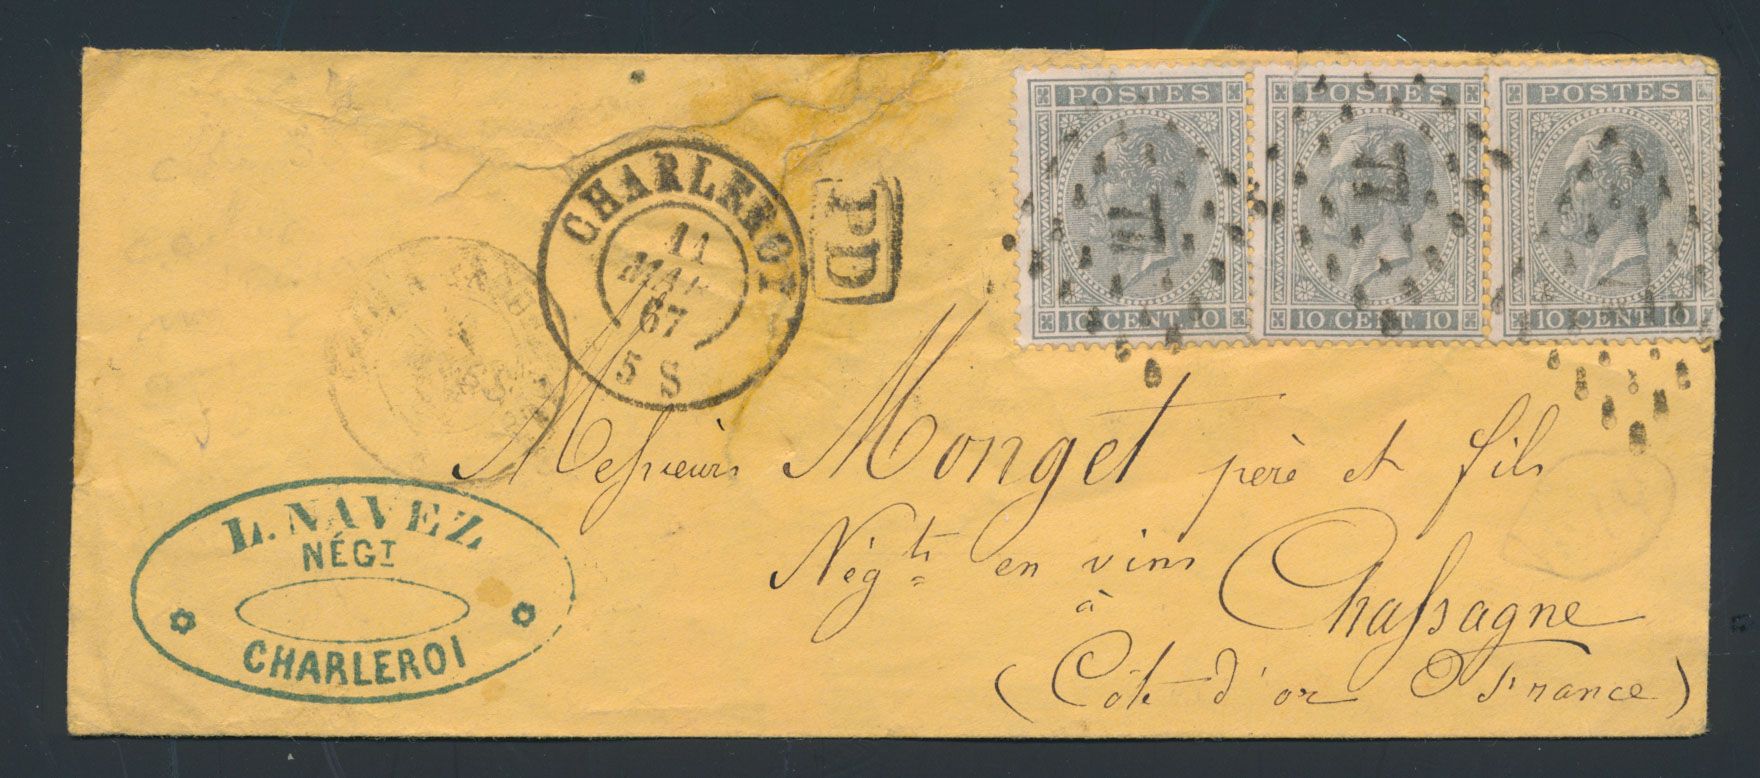 POSTES POSTES POSTES
10 CENT 10 10 CENT 10 10 CENT 10
77
77
CHARLEROI
11
MAR
67
5 S
PD
L. NAVEZ
NÉGT
CHARLEROI
Messieurs Monget père et fils
Négts en vins
à Chassagne
(Côte d'or France)